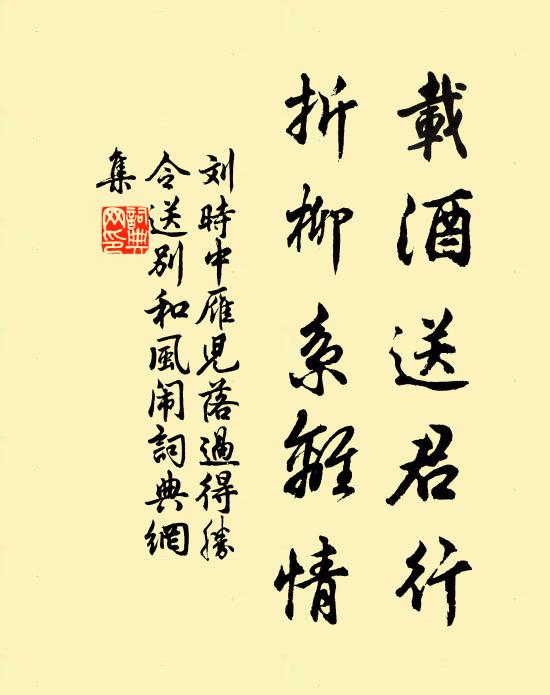 載酒送君行
折柳系離情
刘時中雁児落過得勝
令送别和風闹詞典網
集
詞典網印